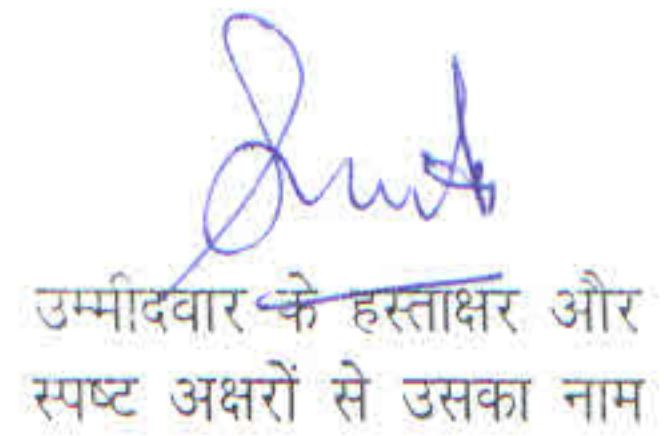 उम्मीदवार के हस्ताक्षर और
स्पष्ट अक्षरों से उसका नाम